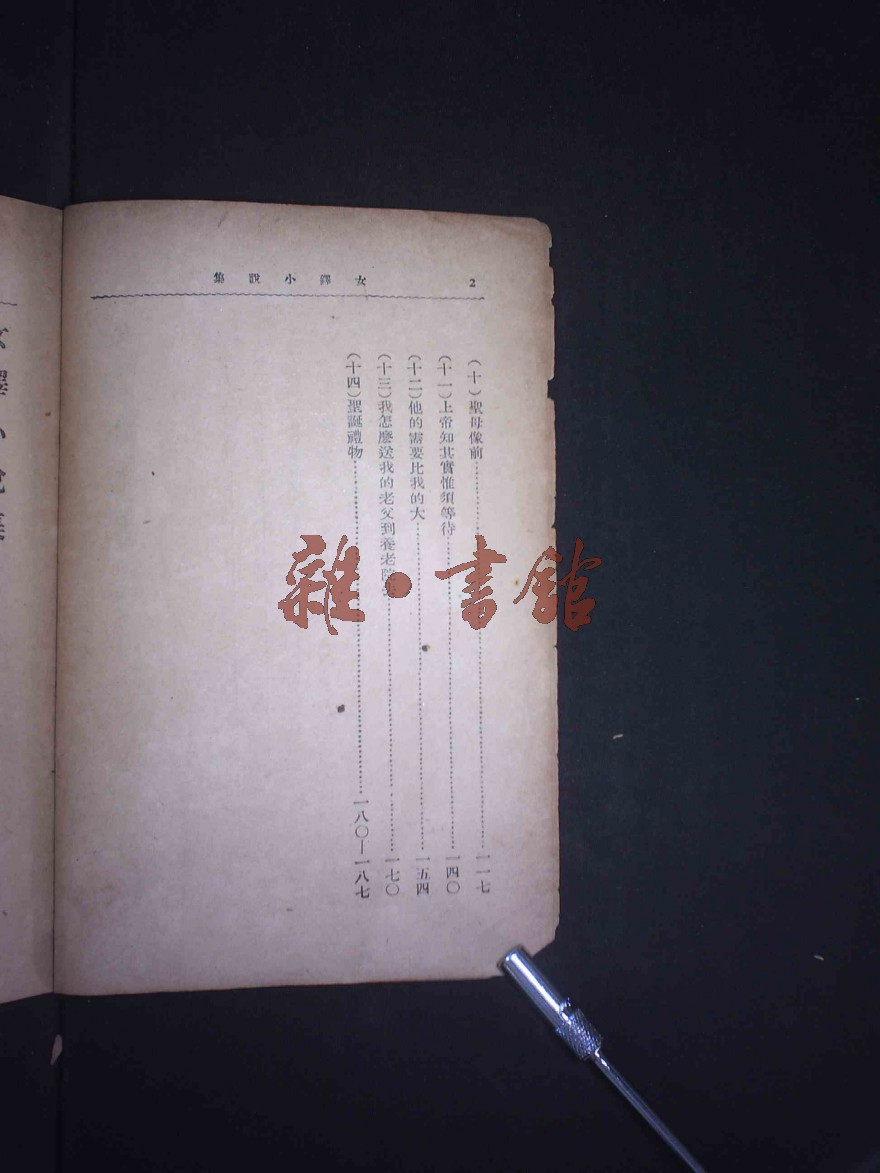 2 女鐸小說集
(十)聖母像前……一一七
(十一)上帝知其實惟須等待……一四〇
(十二)他的需要比我的大……一五四
(十三)我怎麼送我的老父到養老院……一七〇
(十四)聖誕禮物……一八〇—一八七
女鐸小說集
雜·書館